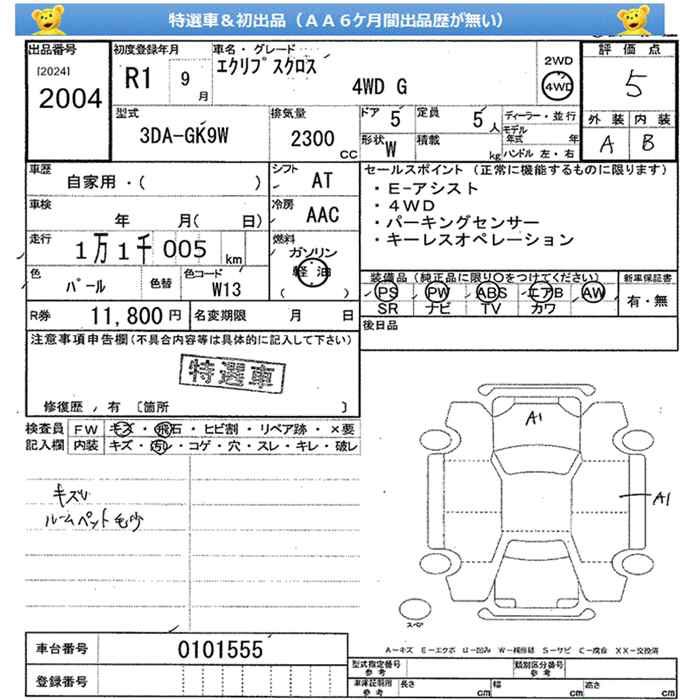 特選車＆初出品（ＡＡ６ケ月間出品歴が無い）
出品番号 初度登録年月 車名・グレード 評価点
[2024] R1 9月 エクリプスクロス 2WD 5
2004 4WD G 4WD
外装 内装
型式 排気量 ドア 定員 ディーラー・並行
3DA-GK9W 2300 CC 5 5人 モデル年式 年 A B
形状 W 積載 kg ハンドル 左・右
車歴 シフト セールスポイント（正常に機能するものに限ります）
自家用・( ) AT ・E-アシスト
車検 冷房 ・４WD
年 月( 日) AAC ・パーキングセンサー
走行 燃料 ・キーレスオペレーション
1万1千005km ガソリン
軽油
( )
色 色替 色コード 装備品（純正品に限り○をつけてください） 新車保証書
パール W13 PS PW ABS エアB AW 有・無
SR ナビ TV カワ
R券 11,800円 名変期限 月 日 後日品
注意事項申告欄（不具合内容等は具体的に記入して下さい）
特選車
修復歴 , 有 〔箇所 〕
検査員 FW キズ・飛石・ヒビ割・リペア跡・×要
記入欄 内装 キズ・汚レ・コゲ・穴・スレ・キレ・破レ
A1
キズリ
A1
スペア
車台番号 0101555
A－キズ E－エクボ U－凹み W－補修跡 S－サビ C－腐食 XX－交換済
登録番号
型式指定番号参考 類別区分番号参考
車庫証明用参考 長さ cm 幅 cm 高さ cm